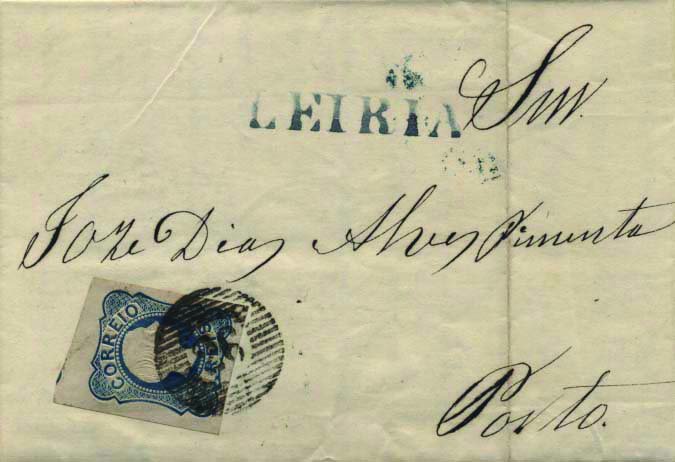 16
LEIRIA
Snr.
Joze Dias Alves Pimenta
CORREIO
REIS
Porto.